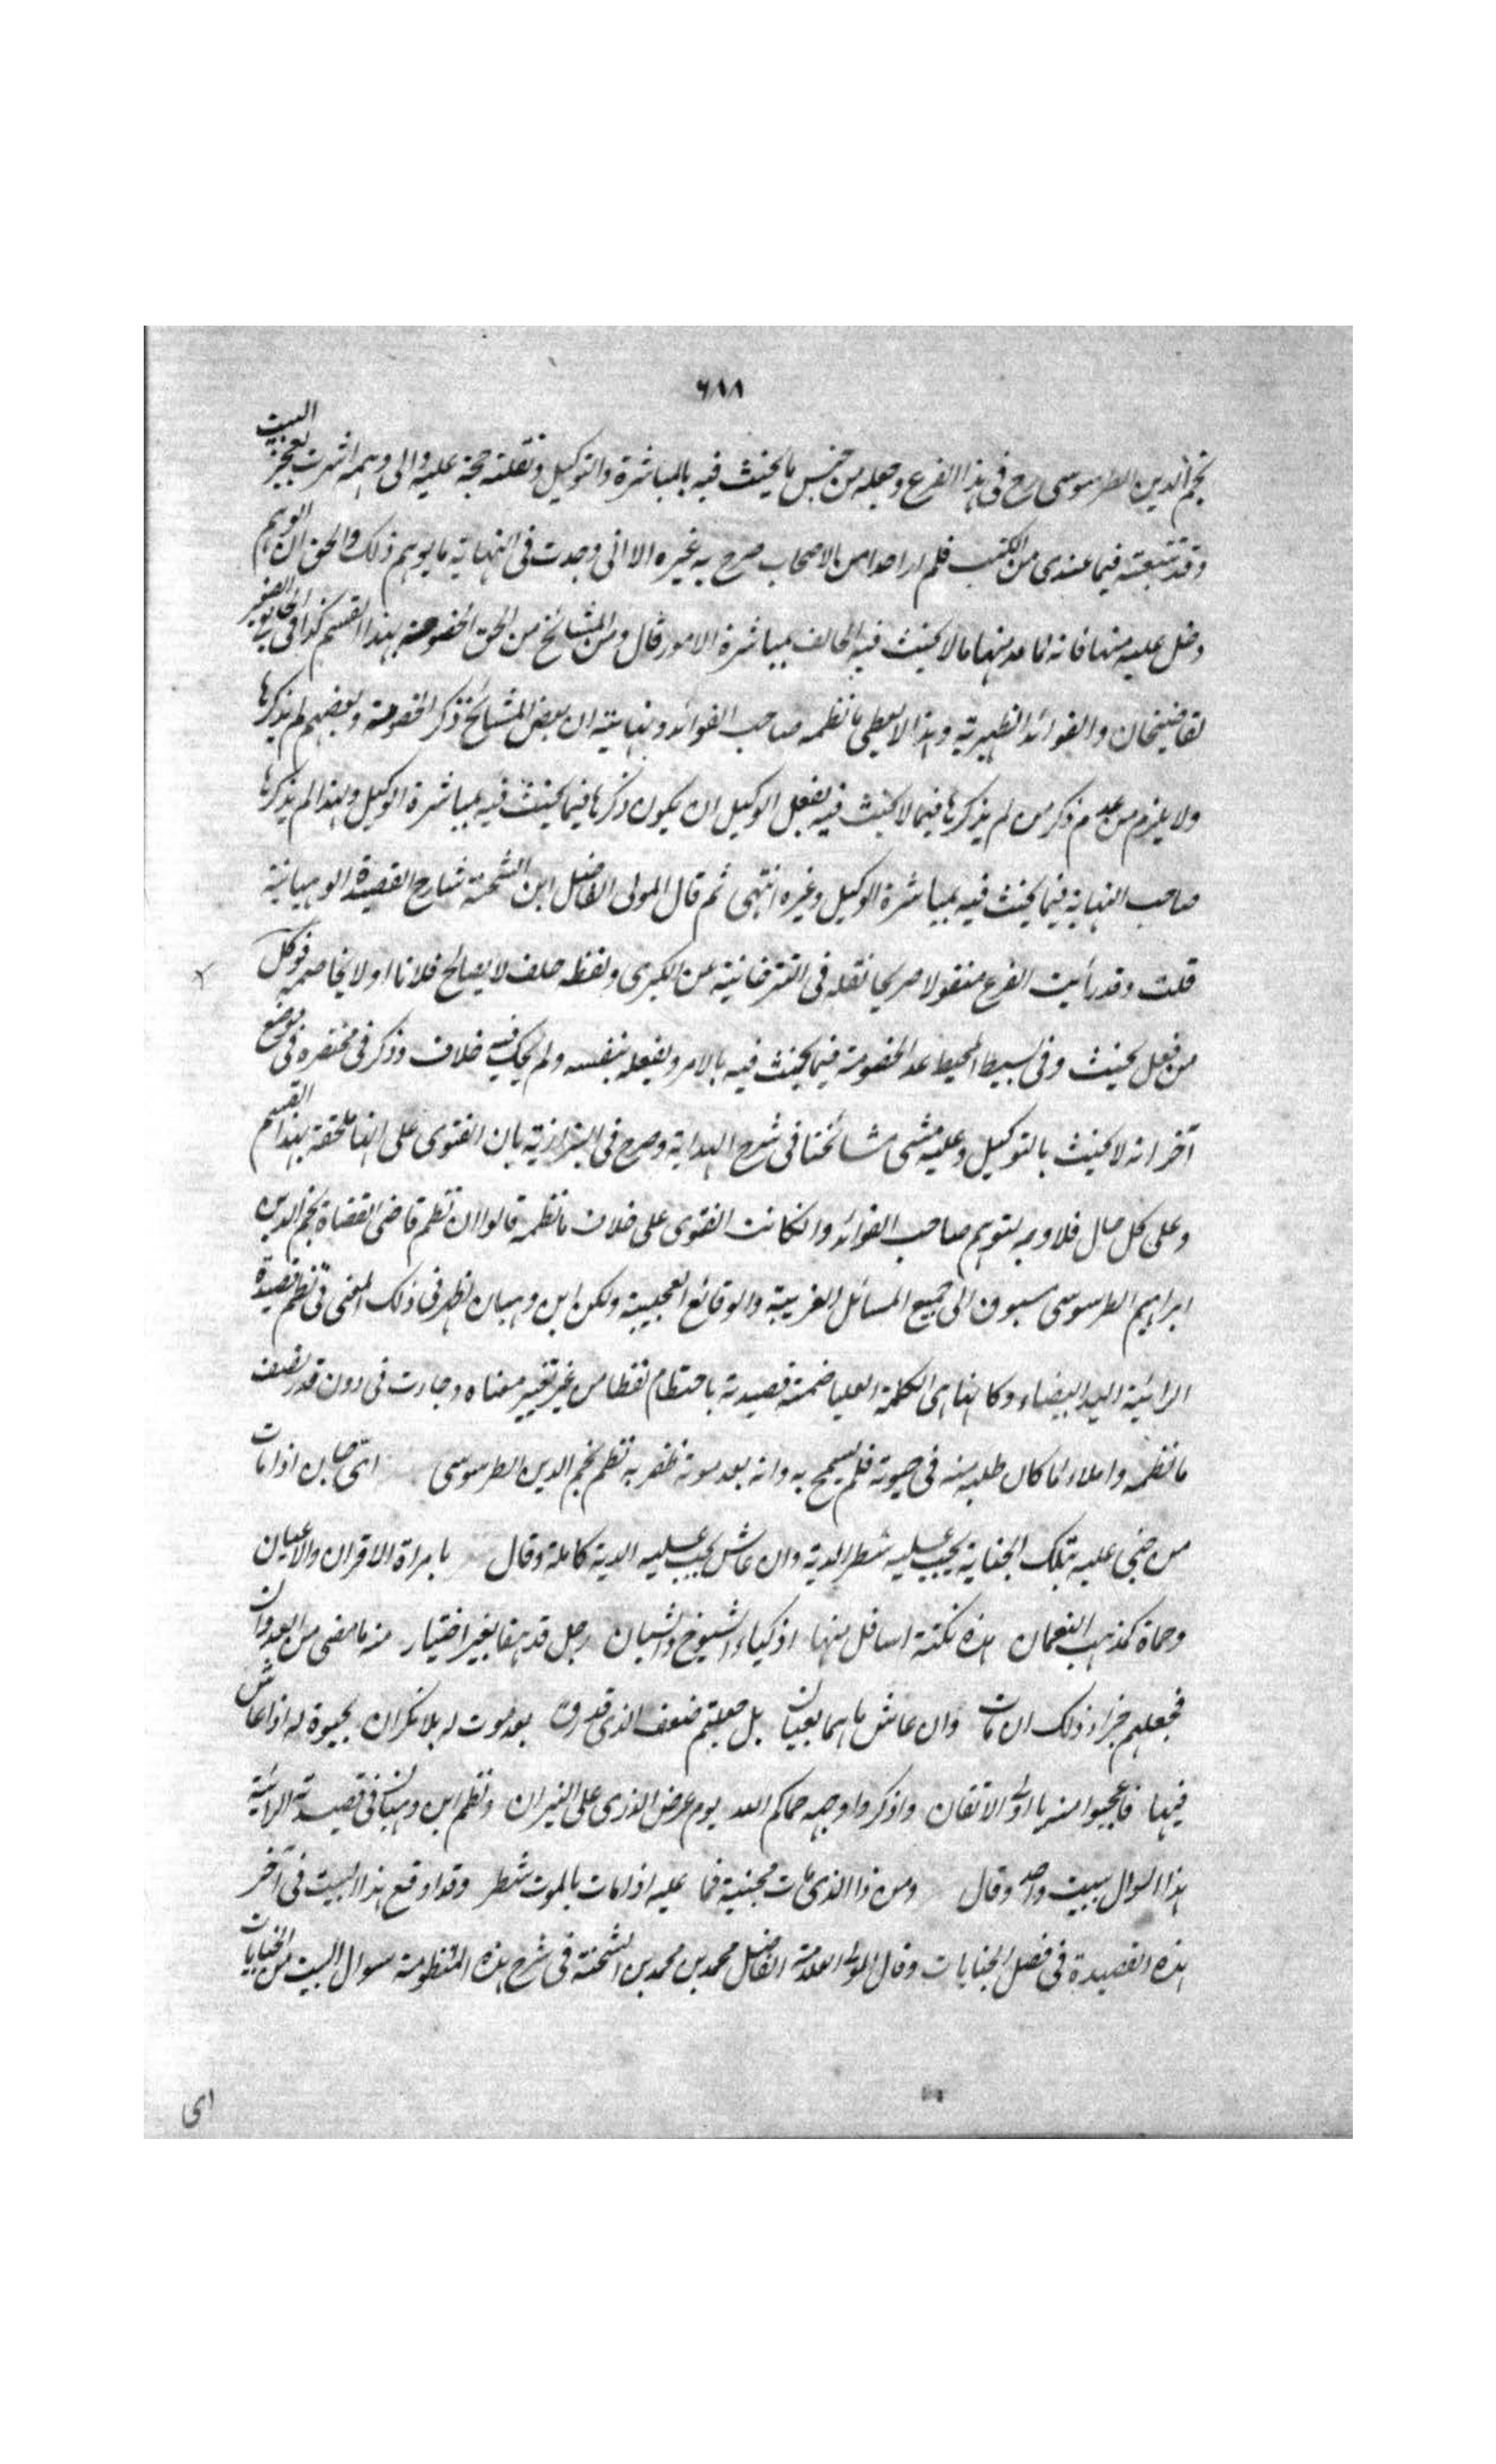 ٦٨٨
نجم الدين الطرسوسى رح فى هذا الفرع وجعله من جنس ما يحنث فيه بالمباشرة والتوكيل ونقلته حجة عليه والى وهمه اشرت بعجز البيت
وقد تتبعته فيما عندى من الكتب فلم ار احدا من الاصحاب صرح به غيره الا انى وجدت فى النهاية ما يوهم ذلك والحق ان الوهم
دخل عليه منها فانه لما عد منها ما لا يحنث فيه الحالف بمباشرة الامور قال ومن المشائخ من الحق الخصومة بهذا القسم كذا فى الجامع الصغير
لقاضيخان والفوائد الظهيرية وهذا لا يعطى ما نظمه صاحب الفوائد ونهايته ان بعض المشائخ ذكر الخصومة وبعضهم لم يذكرها
ولا يلزم من عدم ذكر من لم يذكرها فيما لا يحنث فيه بفعل الوكيل ان يكون ذكرها فيما يحنث فيه بمباشرة الوكيل ولهذا لم يذكرها
صاحب النهاية فيما يحنث فيه بمباشرة الوكيل وغيره انتهى ثم قال المولى الفاضل ابن الشحنة شارح القصيدة الوهبانية
قلت وقد رأيت الفرع منقولا صريحا نقله فى التترخانية عن الكبرى ولفظه حلف لا يصالح فلانا او لا يخاصمه فوكل
من فعل يحنث وفى بسيط المحيط عد الخصومة فيما يحنث فيه بالامر وبفعله بنفسه ولم يحك فيه خلاف وذكر فى مختصره فى موضع
آخر انه لا يحنث بالتوكيل وعليه مشى مشائخنا فى شرح الهداية وصرح فى البزازية بان الفتوى على انها ملحقة بهذا القسم
وعلى كل حال فلا وجه لتوهم صاحب الفوائد وان كانت الفتوى على خلاف ما نظمه قالوا ان نظم قاضى القضاة نجم الدين
ابراهيم الطرسوسى مسبوق الى جميع المسائل الغريبة والوقائع العجيبة ولكن ابن وهبان اظهر فى ذلك المعنى فى نظم قصيدة
الرائية اليد البيضاء وكانها هى الكلمة العليا ضمنه قصيدته لفظا من غير تغيير معناه وجاءت فى دون قدر نصف
ما نظمه واملاء لما كان طلبه منه فى حيوته فلم يسمح به وانه بعد موته ظفر به نظم نجم الدين الطرسوسى اى جان اذا مات
من جنى عليه بتلك الجناية يجب عليه شطر الدية وان عاش يجب عليه الدية كاملة وقال يا سراة الاقران والاعيان
وحماة لمذهب النعمان هذه نكتة اسائل عنها اذكياء الشيوخ والشبان رجل قد هفا بغير اختيار منه ما مضى من العدوان
فجعلهم جزاء ذلك ان مات وان عاش بل جعلتم ضعف الذى بعد موت له بلا نكران بحيوة له اذا عاش
فيها فاعجبوا منه يا اولى الاتقان واذكروا وجهه حماكم الله يوم عرض الورى على النيران ونظم ابن وهبان فى قصيدته الرائية
هذا السوال ببيت واحد وقال ومن ذا الذى مات مجنيه فما عليه اذا مات بالموت شطر وقد اوقع هذا البيت فى آخر
هذه القصيدة فى فصل الجنايات وقال المولى العلامة الفاضل محمد بن محمد بن الشحنة فى شرح هذه المنظومة سوال البيت من الجنايات
اى